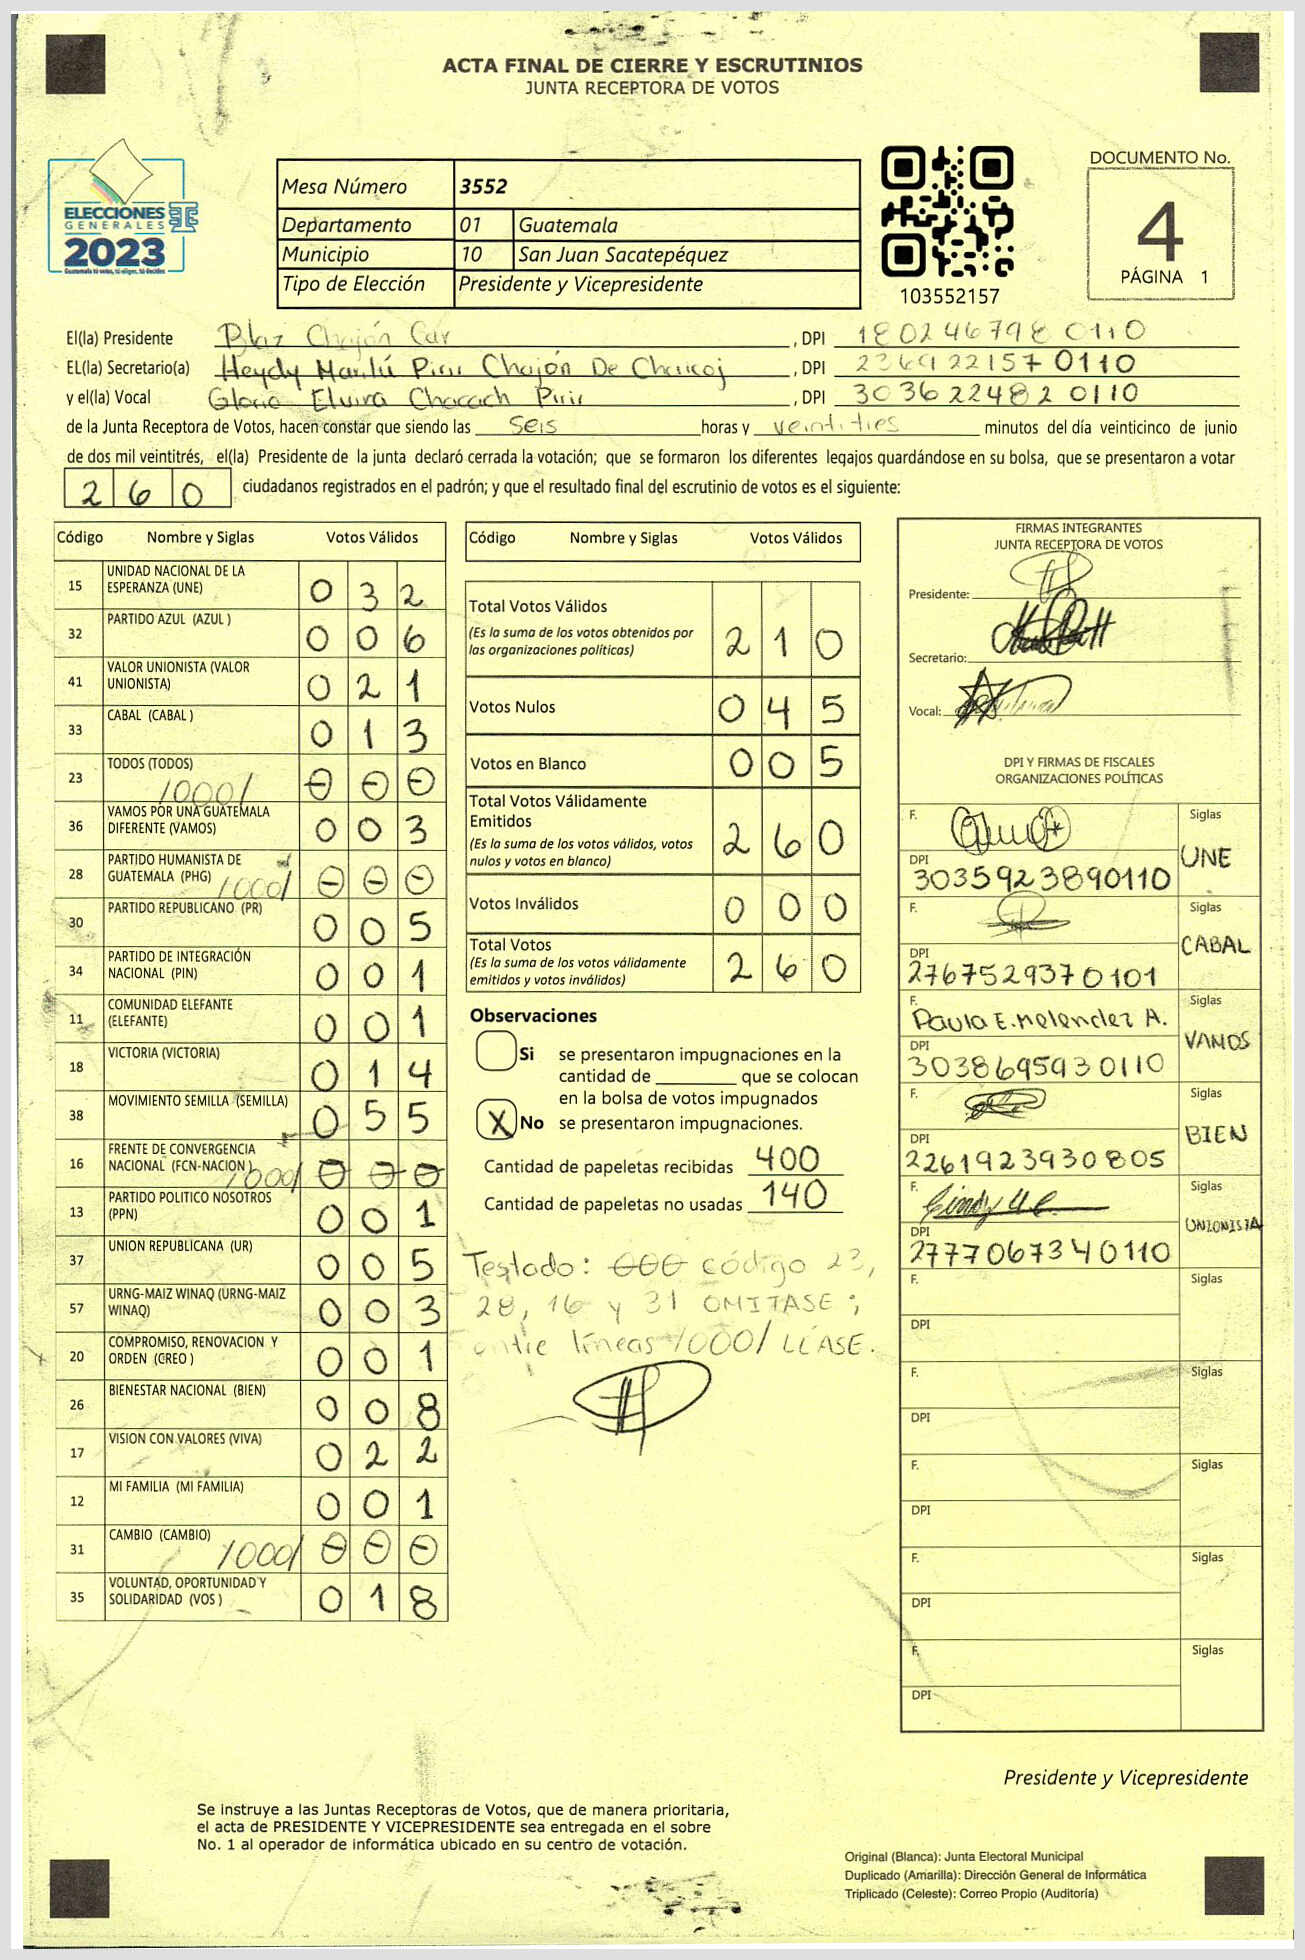 ACTA FINAL DE CIERRE Y ESCRUTINIOS
JUNTA RECEPTORA DE VOTOS
ELECCIONES
GENERALES
2023
Guatemala tú votas, tú eliges, tú decides
Mesa Número 3552
Departamento 01 Guatemala
Municipio 10 San Juan Sacatepéquez
Tipo de Elección Presidente y Vicepresidente
103552157
DOCUMENTO No.
4
PÁGINA 1
El(la) Presidente Blaz Chajón Car, DPI 180246798 0110
EL(la) Secretario(a) Heydy Marilú Pirir Chajón De Chacoj, DPI 236922157 0110
y el(la) Vocal Gloria Elvira Chacach Pirir, DPI 303622482 0110
de la Junta Receptora de Votos, hacen constar que siendo las seis horas y veintitres minutos del día veinticinco de junio
de dos mil veintitrés, el(la) Presidente de la junta declaró cerrada la votación; que se formaron los diferentes legajos guardándose en su bolsa, que se presentaron a votar
260 ciudadanos registrados en el padrón; y que el resultado final del escrutinio de votos es el siguiente:
Código Nombre y Siglas Votos Válidos
15 UNIDAD NACIONAL DE LA ESPERANZA (UNE) 0 3 2
32 PARTIDO AZUL (AZUL ) 0 0 6
41 VALOR UNIONISTA (VALOR UNIONISTA) 0 2 1
33 CABAL (CABAL ) 0 1 3
23 TODOS (TODOS) /000/ 0 0 0
36 VAMOS POR UNA GUATEMALA DIFERENTE (VAMOS) 0 0 3
28 PARTIDO HUMANISTA DE GUATEMALA (PHG) /000/ 0 0 0
30 PARTIDO REPUBLICANO (PR) 0 0 5
34 PARTIDO DE INTEGRACIÓN NACIONAL (PIN) 0 0 1
11 COMUNIDAD ELEFANTE (ELEFANTE) 0 0 1
18 VICTORIA (VICTORIA) 0 1 4
38 MOVIMIENTO SEMILLA (SEMILLA) 0 5 5
16 FRENTE DE CONVERGENCIA NACIONAL (FCN-NACION ) /000/ 0 0 0
13 PARTIDO POLITICO NOSOTROS (PPN) 0 0 1
37 UNION REPUBLICANA (UR) 0 0 5
57 URNG-MAIZ WINAQ (URNG-MAIZ WINAQ) 0 0 3
20 COMPROMISO, RENOVACION Y ORDEN (CREO ) 0 0 1
26 BIENESTAR NACIONAL (BIEN) 0 0 8
17 VISION CON VALORES (VIVA) 0 2 2
12 MI FAMILIA (MI FAMILIA) 0 0 1
31 CAMBIO (CAMBIO) /000/ 0 0 0
35 VOLUNTAD, OPORTUNIDAD Y SOLIDARIDAD (VOS ) 0 1 8
Código Nombre y Siglas Votos Válidos
Total Votos Válidos 2 1 0
(Es la suma de los votos obtenidos por
las organizaciones políticas)
Votos Nulos 0 4 5
Votos en Blanco 0 0 5
Total Votos Válidamente
Emitidos 2 6 0
(Es la suma de los votos válidos, votos
nulos y votos en blanco)
Votos Inválidos 0 0 0
Total Votos 2 6 0
(Es la suma de los votos válidamente
emitidos y votos inválidos)
Observaciones
Si se presentaron impugnaciones en la
cantidad de ________ que se colocan
en la bolsa de votos impugnados
X No se presentaron impugnaciones.
Cantidad de papeletas recibidas 400
Cantidad de papeletas no usadas 140
Testado: 000 código 23,
28, 16 y 31 OMITASE;
entre líneas /000/ LÉASE.
FIRMAS INTEGRANTES
JUNTA RECEPTORA DE VOTOS
Presidente:
Secretario:
Vocal:
DPI Y FIRMAS DE FISCALES
ORGANIZACIONES POLÍTICAS
F. Siglas
DPI UNE
3035923890110
F. Siglas
DPI CABAL
2767529370101
F. Siglas
Paula E. Melendez A.
DPI VAMOS
3038695930110
F. Siglas
DPI BIEN
2261923930805
F. Siglas
Cindy
DPI UNIONISTA
2777067340110
F. Siglas
DPI
F. Siglas
DPI
F. Siglas
DPI
F. Siglas
DPI
F. Siglas
DPI
Presidente y Vicepresidente
Se instruye a las Juntas Receptoras de Votos, que de manera prioritaria,
el acta de PRESIDENTE Y VICEPRESIDENTE sea entregada en el sobre
No. 1 al operador de informática ubicado en su centro de votación.
Original (Blanca): Junta Electoral Municipal
Duplicado (Amarilla): Dirección General de Informática
Triplicado (Celeste): Correo Propio (Auditoría)